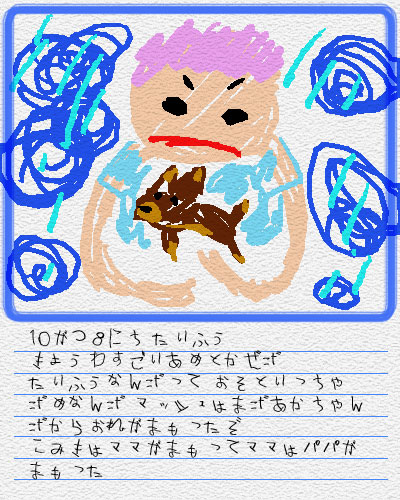 10がつ8にち たいふう
きようわすごいあめとかぜだ
たいふうなんだって おそといっちゃ
だめなんだ マッシュはまだあかちゃん
だからおれがまもったぞ
こみきはママがまもってママはパパが
まもった